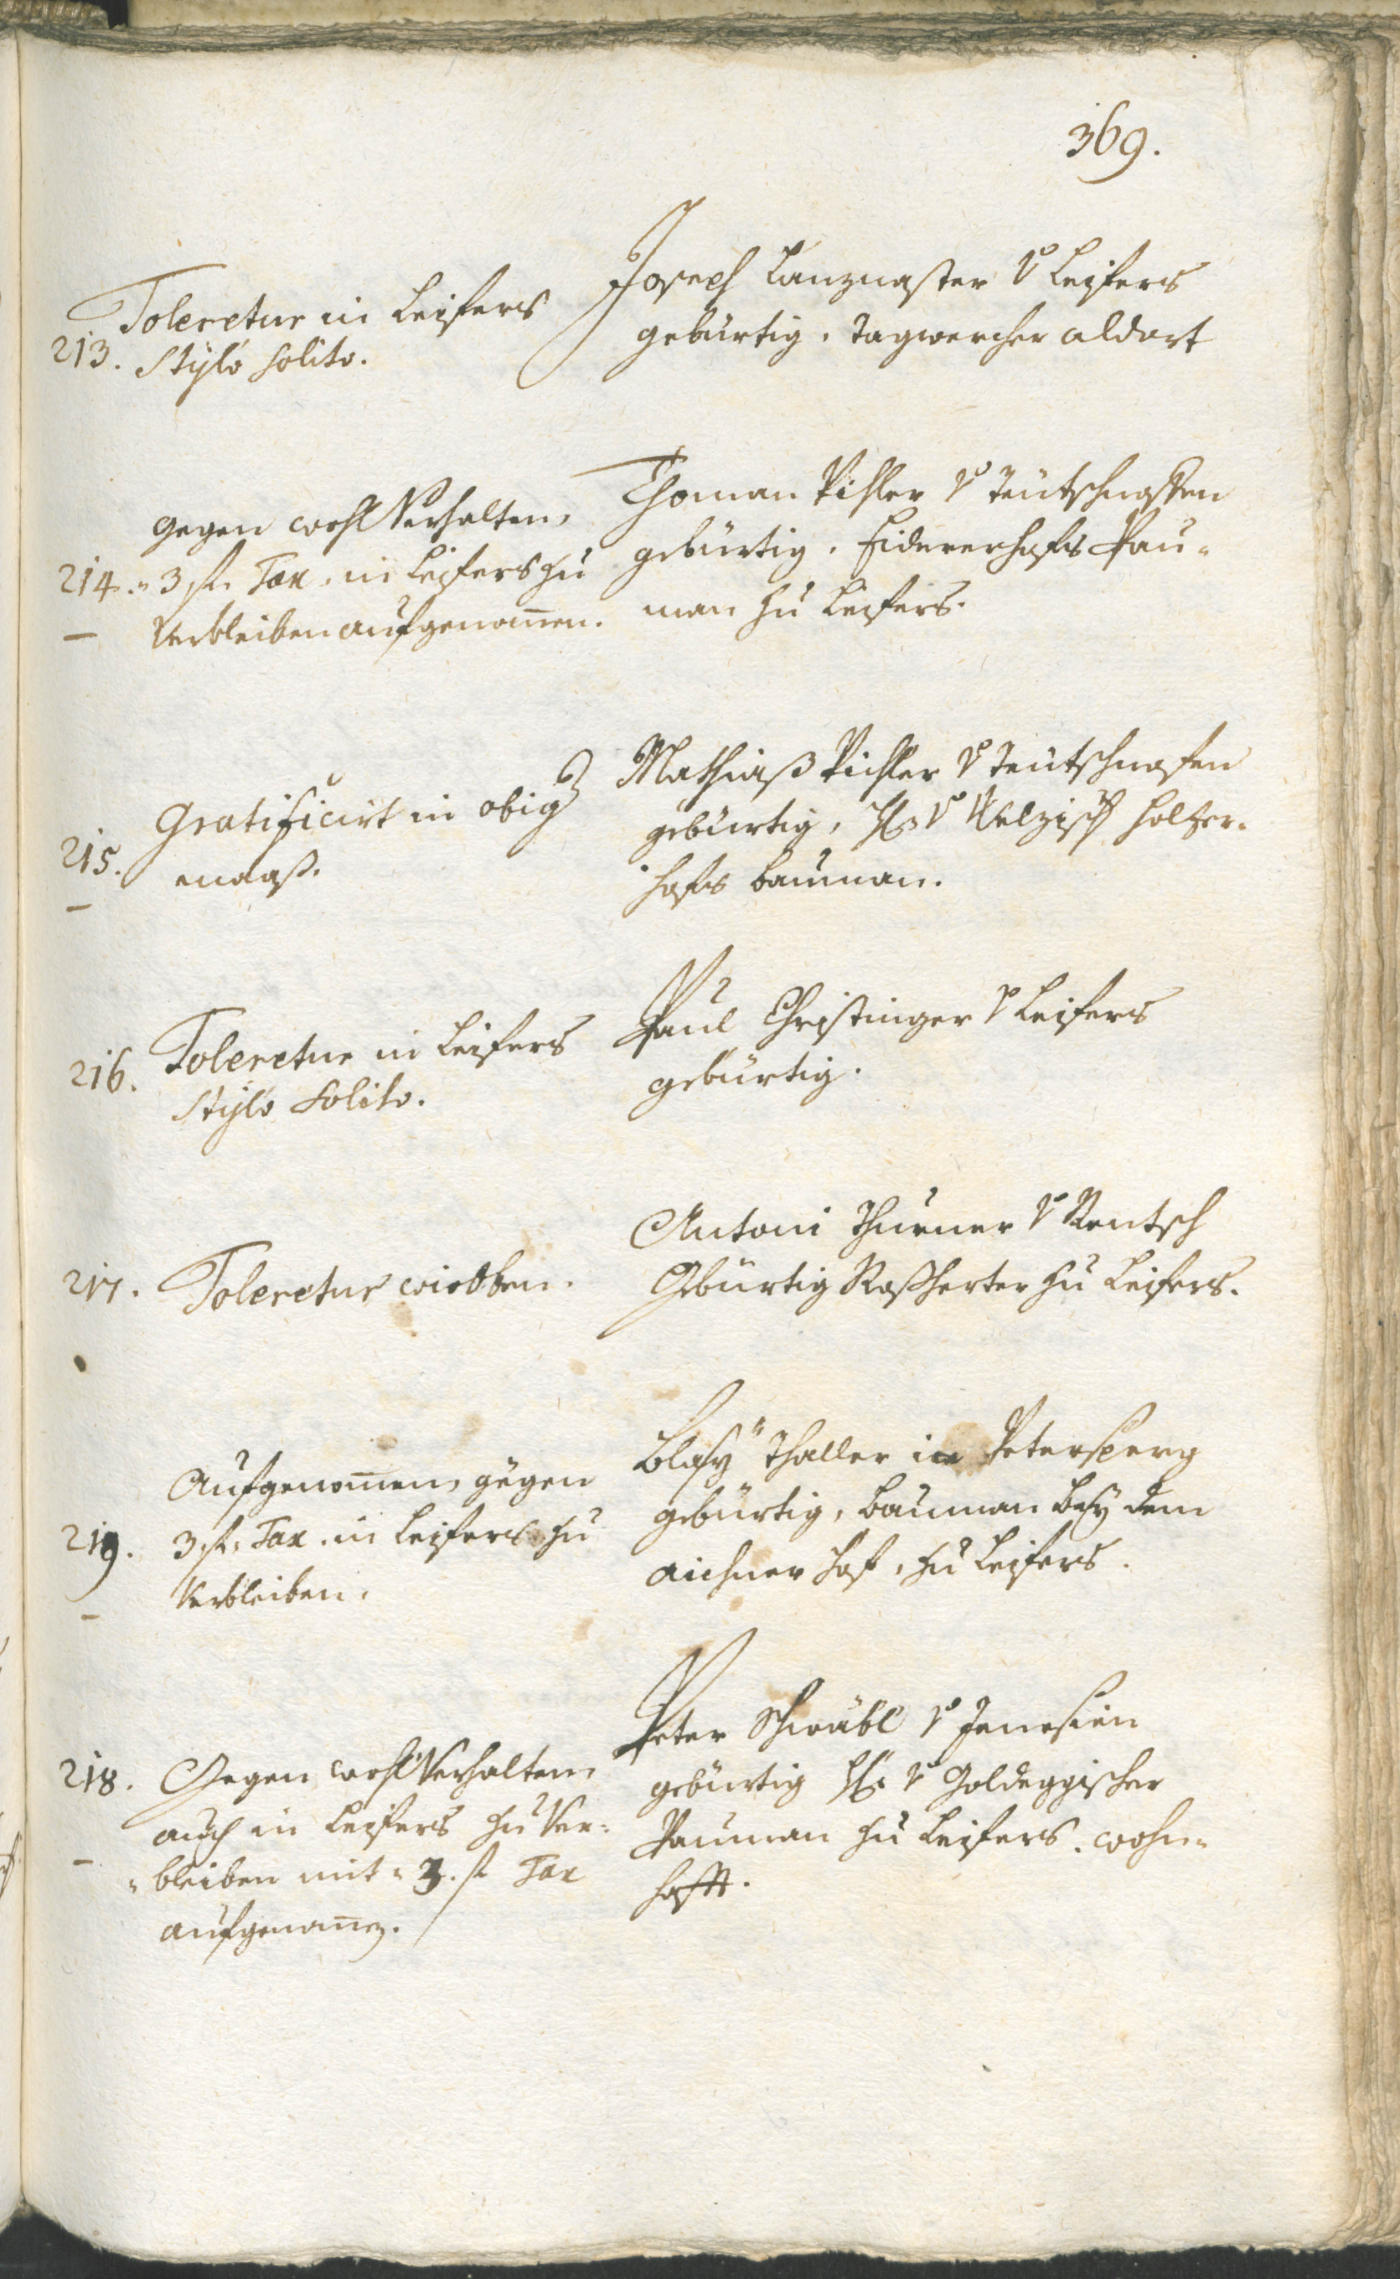 369.
Toleretur in Leifers
213. Stÿlo solito.
Joseph Lanznaster v Leifers
gebürtig. Tagwercher aldort
gegen wohl Verhalten,
214. 3 fl. Tax. in Leifers zu
Verbleiben aufgenom̅en.
Thoman Pichler v Teütschnoffen
gebürtig. Eidererhofs Pau-
man zu Leifers.
Gratificirt in obig
215. endaß.
Mathiaß Pichler v Teütschnofen
gebürtig, H: v Welzisch Holzer-
hofs bauman.
Toleretur in Leifers
216. Stÿlo Solito.
Paul Christinger v Leifers
gebürtig.
217. Toleretur wie oben.
Antoni Thurner v Rentsch
Gebürtig Roßherter zu Leifers.
Aufgenom̅en, gegen
219. 3 fl. Tax. in Leifers zu
Verbleiben.
Blasÿ Thaller in Petersperg
gebürtig, Bauman beÿ dem
aichner hof, zu Leifers.
218. Gegen wohl Verhalten,
auch in Leifers zu Ver-
bleiben mit 3. fl Tax
aufgenom̅en.
Peter Schwäbl v Jenesien
gebürtig H: v Goldeggischer
Pauman zu Leifers. wohn-
hafft.